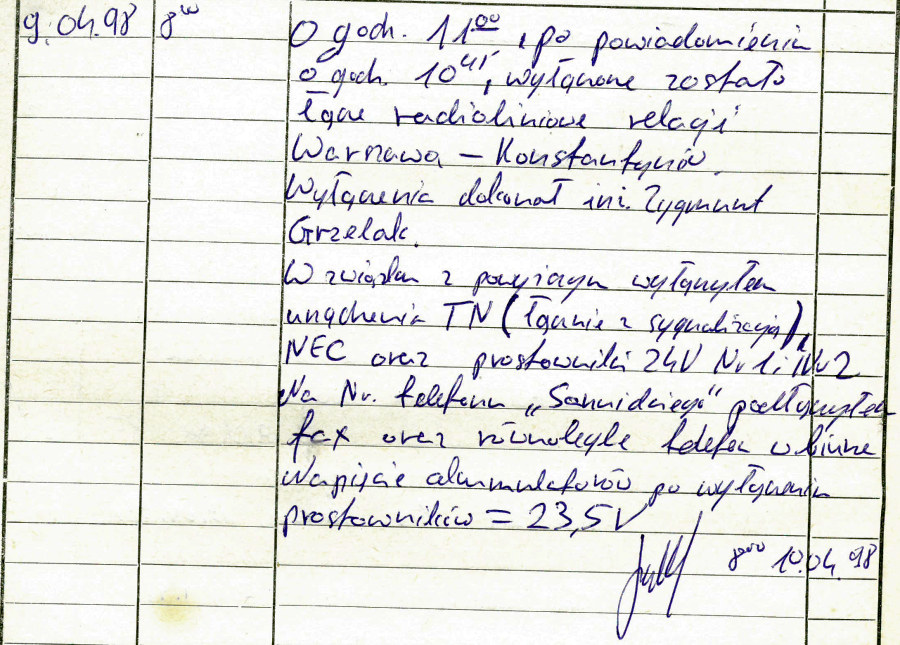 9.04.98 8⁰⁰ O godz. 11⁰⁰, po powiadomieniu
o godz. 10⁴⁵, wyłączone zostało
łącze radioliniowe relacji
Warszawa – Konstantynów.
Wyłączenia dokonał inż. Zygmunt
Grzelak.
W związku z powyższym wyłączyłem
urządzenia TN (łącznie z sygnalizacją),
NEC oraz prostowniki 24V Nr 1 i Nr 2
Na Nr. telefonu „ podłączyłem
fax oraz równolegle telefon w biurze
Napięcie akumulatorów po wyłączeniu
prostowników = 23,5V
8⁰⁰ 10.04.98